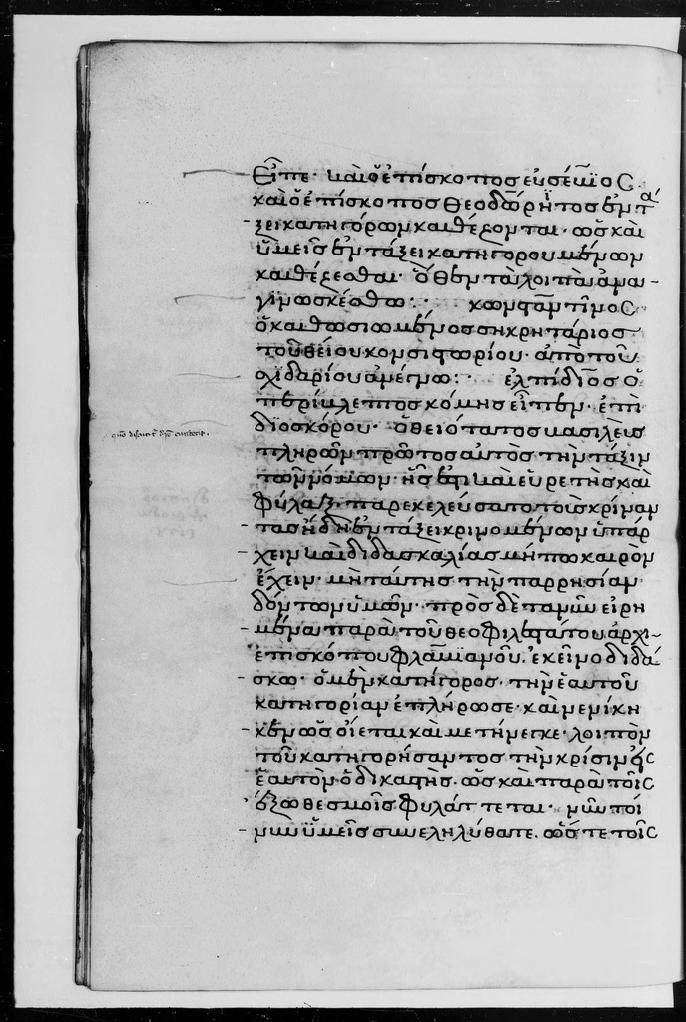 Εἶπε· καὶ ὁ ἐπίσκοπος εὐσέβϊος
καὶ ὁ ἐπίσκοπος Θεοδώρητος ἐν τά
ξει κατηγόρων καθέζονται· ὡς καὶ
ὑμεῖς ἐν τάξει κατηγορουμένων
καθέζεσθαι· ὅθεν τὰ λοιπὰ ἀνα
γινωσκέσθω: κωνσταντῖνος
ὁ καθωσιωμένος σηκρητάριος
τοῦ θείου κονσιστωρίου· ἀπὸ τοῦ
σχιδαρίου ἀνέγνω: ἐλπίδιος ὁ
περίβλεπτος κόμης εἶπεν· ἐπὶ
διοσκόρου· ὁ θειότατος βασιλεὺς
πληρῶν πρῶτος αὐτὸς τὴν τάξιν
τῶν νόμων· ἧς ἐστι καὶ εὑρετὴς καὶ
φύλαξ· παρεκελεύσατο τοῖς κρίναν
τας ἤδη ἐν τάξει κρινομένων ὑπάρ
χειν καὶ διδασκαλίας μήπω καιρὸν
ἔχειν· μὴ ταύτης τὴν παρρησίαν
δόντων ὑμῶν· πρὸς δὲ τὰ νῦν εἰρη
μένα παρὰ τοῦ θεοφιλεστάτου ἀρχι
ἐπισκόπου φλαβιανοῦ· ἐκεῖνο διδά
σκω· ὁ μὲν κατήγορος· τὴν ἑαυτοῦ
κατηγορίαν ἐπλήρωσε· καὶ νενίκη
κεν ὡς οἴεται καὶ μετήνεγκε· λοιπὸν
τοῦ κατηγορήσαντος τὴν κρίσιν εἰς
ἑαυτὸν ὁ δικαστής· ὡς καὶ παρὰ τοῖς
ἔξω θεσμοῖς φυλάττεται· νῦν τοί
νυν ὑμεῖς συνεληλύθατε· ὥστε τοῖς